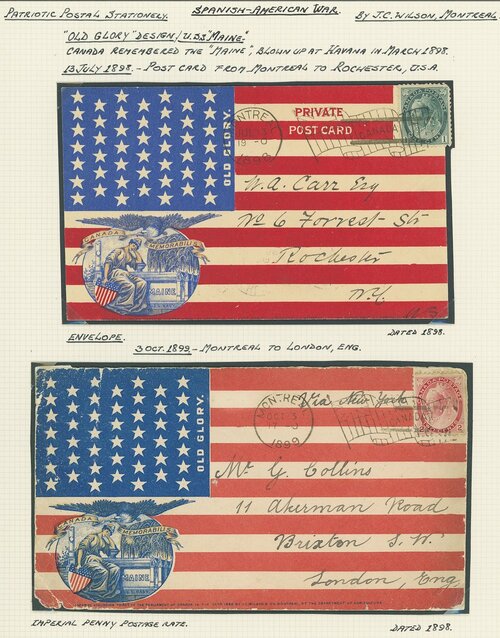 PATRIOTIC POSTAL STATIONERY. SPANISH-AMERICAN WAR. BY J.C. WILSON, MONTREAL
"OLD GLORY" DESIGN/U.S.S "MAINE."
CANADA REMEMBERED THE "MAINE", BLOWN UP AT HAVANA IN MARCH 1898.
13 JULY 1898.- POST CARD FROM MONTREAL TO ROCHESTER, U.S.A.
OLD GLORY.
MONTREAL
19-0
1898
PRIVATE
POST CARD
CANADA
W. A. Carr Esq
No 6 Forrest Str
Rochester
N.Y.
U.S.
CANADA MEMORABILIS
MAINE
DATED 1898.
ENVELOPE.
3 OCT. 1899.- MONTREAL TO LONDON, ENG.
OLD GLORY.
MONTREAL
OCT 3
17-0
1899
Via New York
Mr G. Collins
11 Akerman Road
Brixton S.W.
London, Eng
CANADA MEMORABILIS
MAINE
IMPERIAL PENNY POSTAGE RATE.
DATED 1898.